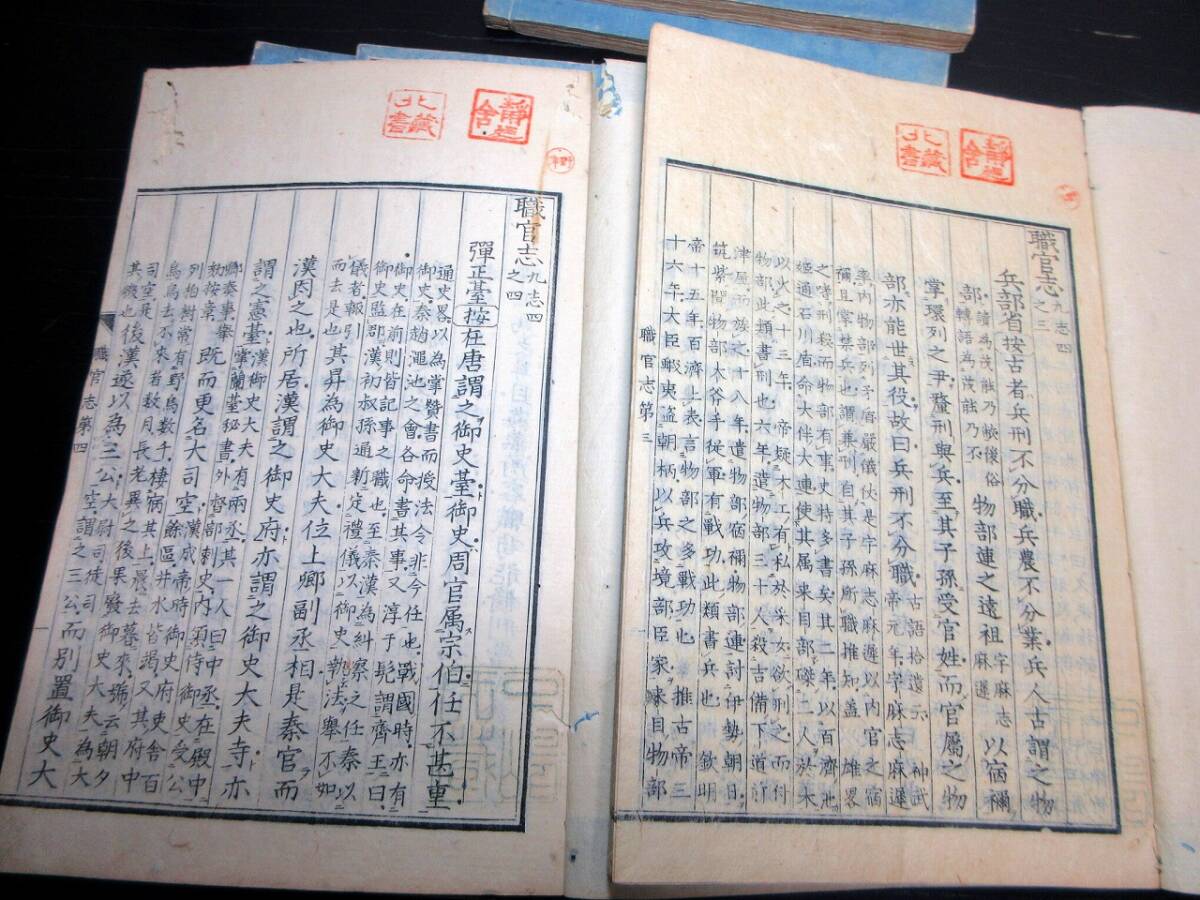 北藏書
靜廼舍
職官志九志四之三
兵部省按古者兵刑不分職兵農不分業兵人古謂之物
部
讀為茂能乃
部轉語為茂能乃不
物部連之遠祖
宇麻志
麻遲
以宿禰
掌環列之尹整刑與兵至其子孫受官姓而官属之物
部亦能世其役故曰兵刑不分職
古語拾遺云神武
帝元年宇麻志麻遲
率内物部列矛盾嚴儀仗是宇麻志麻遲以内官之宿
禰且掌禁兵也謂兼刑自其子孫所職推知盖雄畧
之嗜刑殺而物部有事史特多書矣其二年以百濟池
姫通石川盾命大伴大連使其属来目部磔二人於
以火之十三年帝疑木工有私於采女欲刑之而付
物部此類書刑也六年遣物部三十人殺吉備下道
津屋而族之十八年遣物部宿禰物部連討伊勢朝日
筑紫聞物部大斧手従軍有戰功此類書兵也欽明
帝十五年百濟上表言物部之多戰功也推古帝三
十六年大臣蝦夷盗朝柄以兵攻境部臣家来目物部
職官志第三
北藏書
靜廼舍
職官志九志四之四
彈正臺按在唐謂之御史臺御史周官属宗伯任不甚重
通史畧以為掌贊書而授法令非今任也戰國時亦有
御史秦趙澠池之會各命書其事又淳于髡謂齊王曰
御史在前則皆記事之職也至秦漢為糾察之任秦以
御史監郡漢初叔孫通新定禮儀以御史執法舉不如
儀者輙引
而去是也
其昇為御史大夫位上卿副丞相是秦官而
漢因之也所居漢謂之御史府亦謂之御史大夫寺亦
謂之憲臺
漢御史大夫有兩丞其一人曰中丞在殿中
掌蘭臺秘書外督部刺史内領侍御史受公
卿奏事舉
劾按章
既而更名大司空
漢成帝時御史府吏舎百
餘區井水皆竭又其府中
列栢樹常有野烏數千棲宿其上晨去暮來號云朝夕
烏烏去不來者數月長老異之後果廢御史大夫為大
司空是
其徴也
後漢遂以為三公
大尉司徒司
空謂之三公
而別置御史大
職官志第四